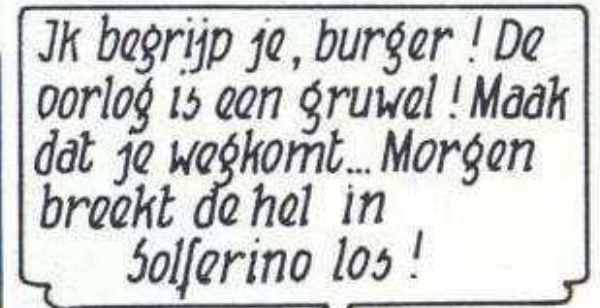 Ik begrijp je, burger ! De
oorlog is een gruwel ! Maak
dat je wegkomt... Morgen
breekt de hel in
Solferino los !